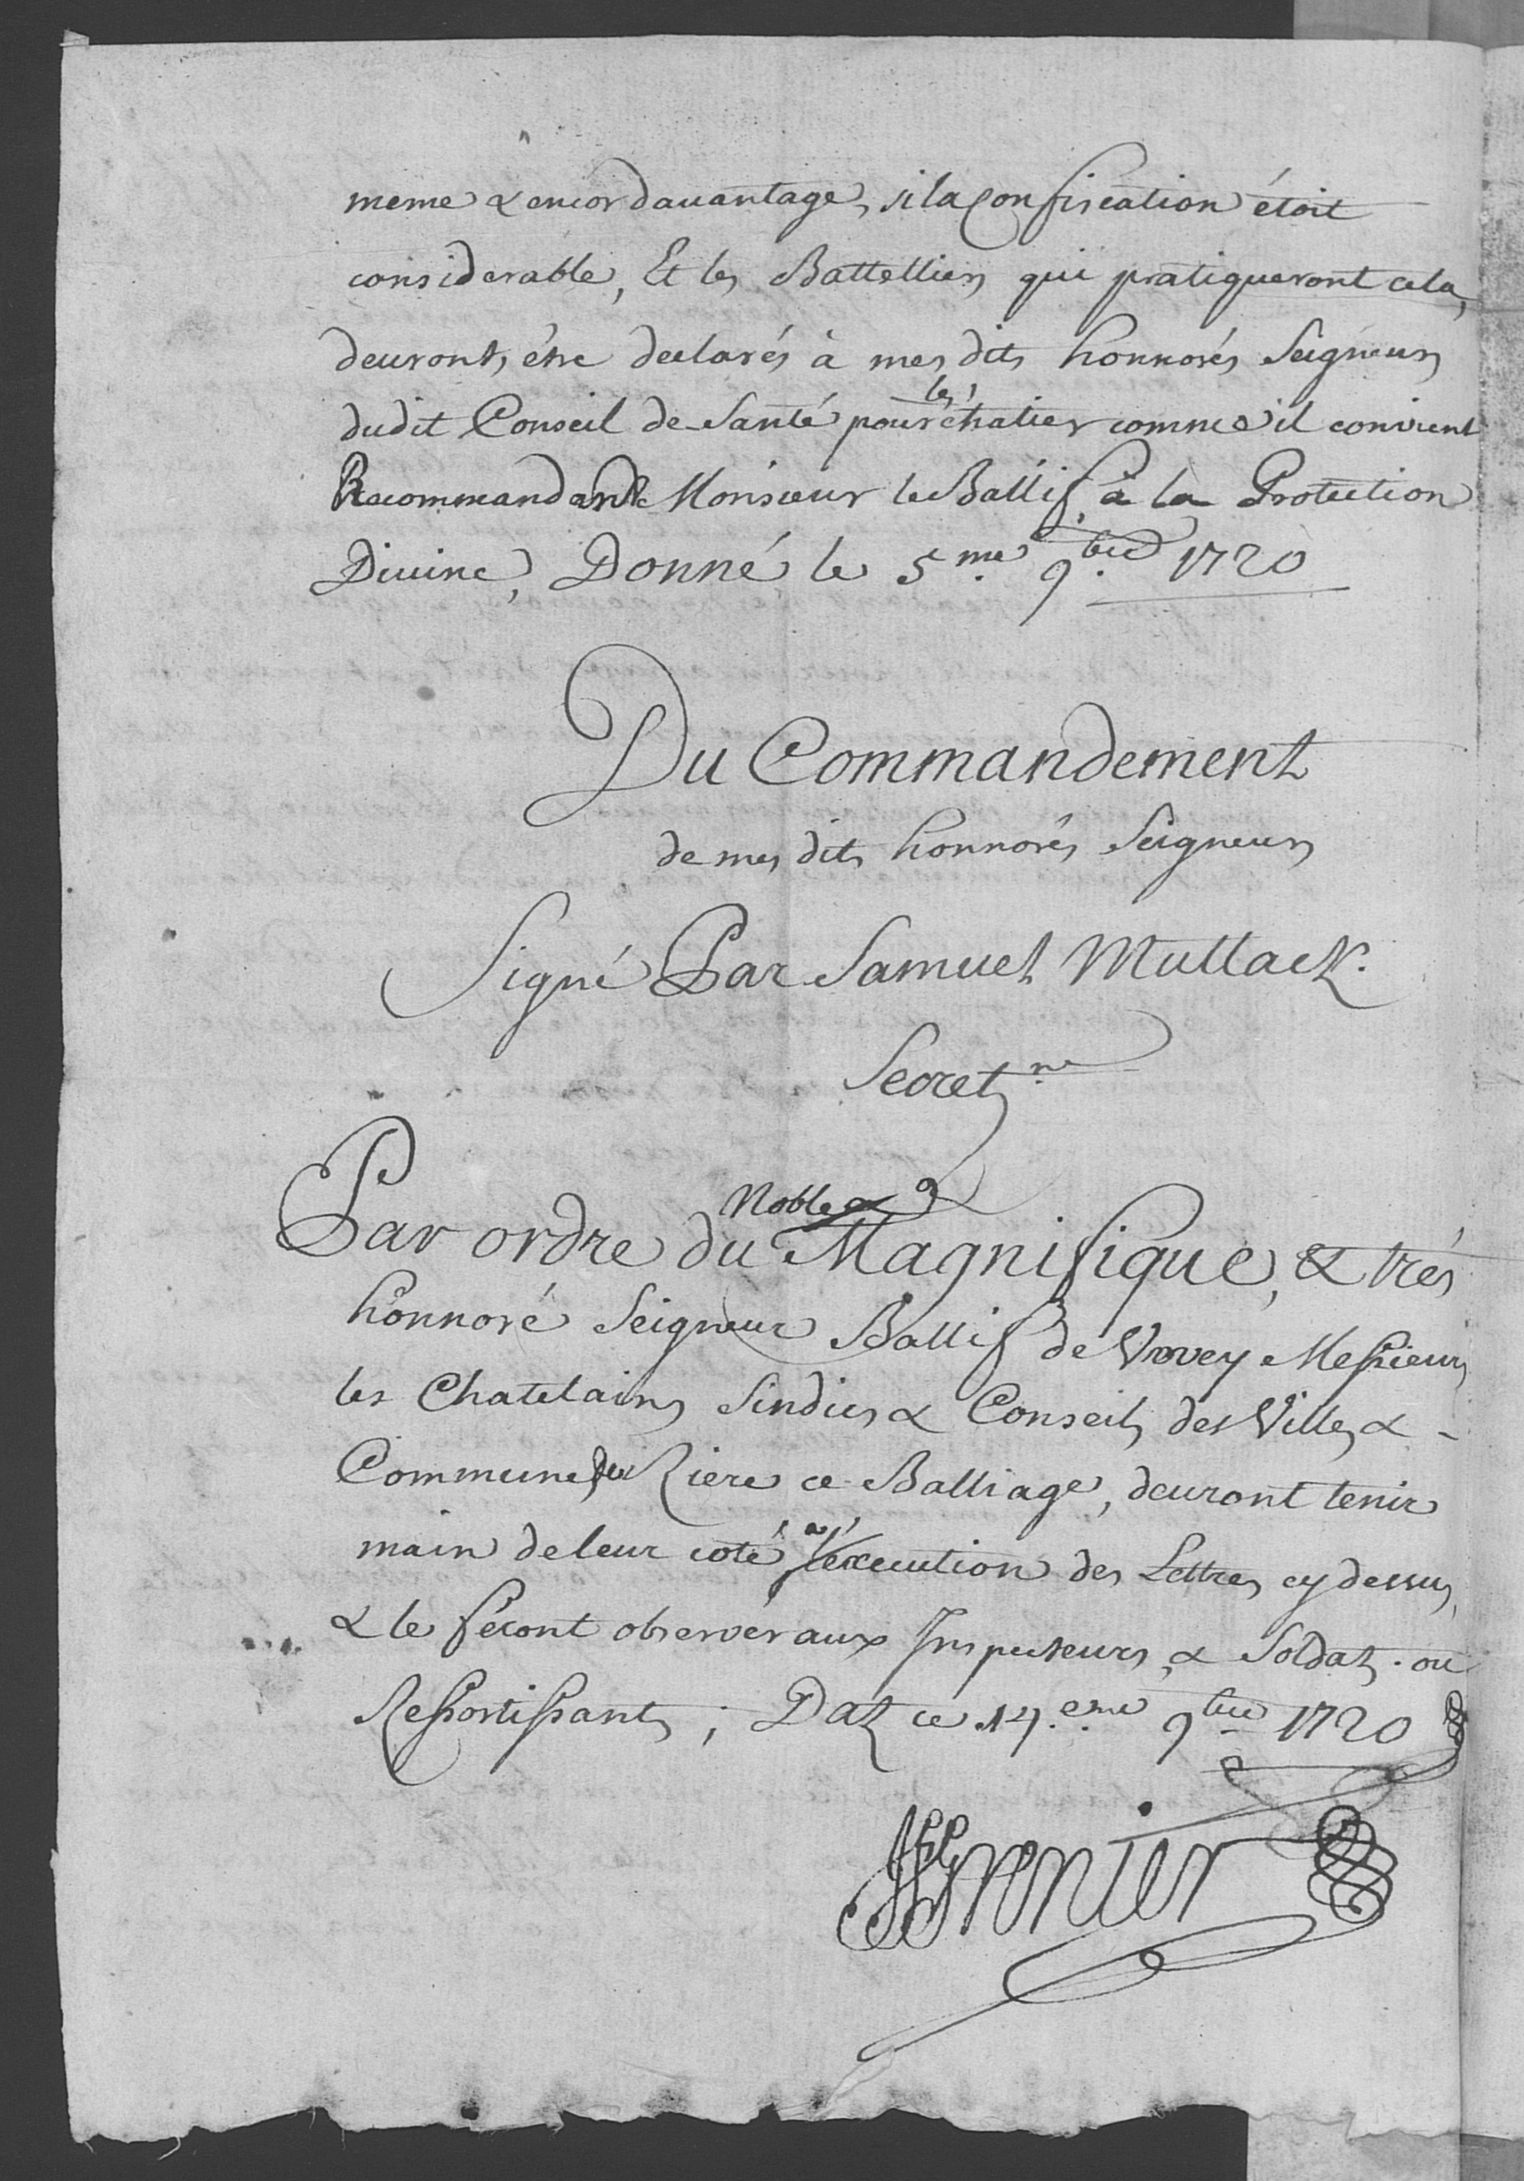 meme & encor dauantage, si la Confiscation étoit
considerable, Et les Battelliers qui pratiqueront cela,
deuront être declarés à mes dits honnorés Seigneurs
dudit Conseil de Santé pour les chatier comme il convient
Recommandant Monsieur le Ballif, à la Protection
Divine, Donné le 5.me 9.bre 1720
Du Commandement
de mes dits honnorés Seigneurs
Signé Par Samuel Mutlack.
Secret.re
Par ordre du Noble & Magnifique, & très
honnoré Seigneur Ballif de Vevey Messieurs
les Chatelains Sindics & Conseils des Villes &
Communes Riere ce Balliage, deuront tenir
main de leur coté a l'execution des Lettres cy dessus,
& le feront observer aux Inspecteurs, & Soldats. ou
Ressortissants; Dat ce 14.eme 9bre 1720